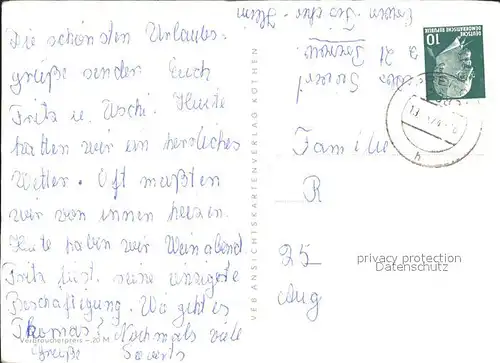 Die schönsten Urlaubs-
grüße senden Euch
Fritz u. Uschi. Heute
hatten wir ein herrliches
Wetter. Oft mußten
wir von innen heizen.
Heute haben wir Weinabend.
Fritz seine einzigste
Beschäftigung. Wie geht es
Thomas? Nochmals viele
Grüße
Verbraucherpreis -,20 M
VEB ANSICHTSKARTENVERLAG KÖTHEN
DEUTSCHE
DEMOKRATISCHE REPUBLIK
10
Familie
R
25
Aug
privacy protection
Datenschutz